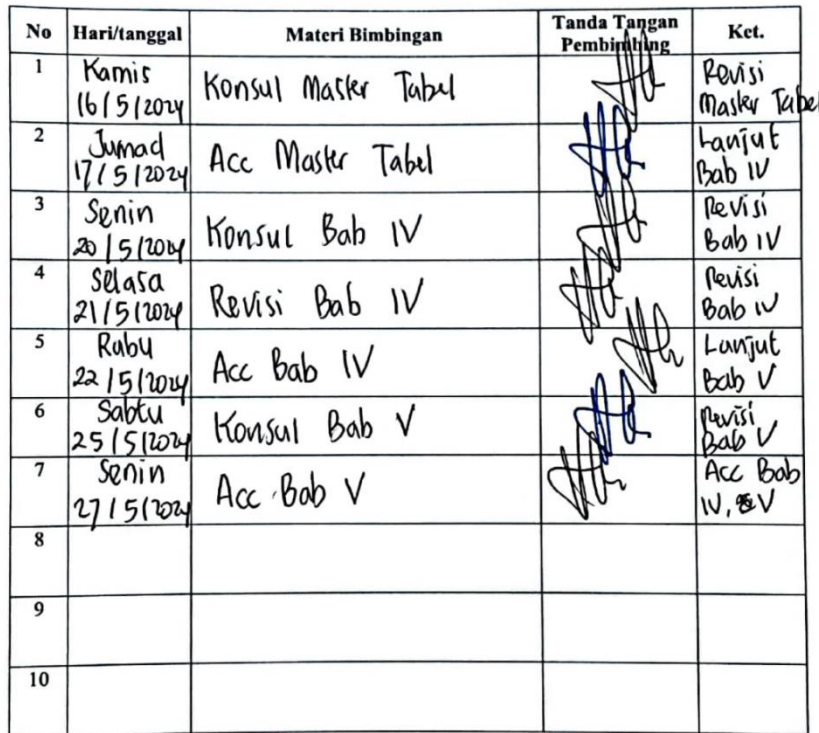 No Hari/tanggal Materi Bimbingan Tanda Tangan Pembimbing Ket.
1 Kamis 16/5/2024 Konsul Master Tabel Revisi Master Tabel
2 Jumad 17/5/2024 Acc Master Tabel Lanjut Bab IV
3 Senin 20/5/2024 Konsul Bab IV Revisi Bab IV
4 Selasa 21/5/2024 Revisi Bab IV Revisi Bab IV
5 Rabu 22/5/2024 Acc Bab IV Lanjut Bab V
6 Sabtu 25/5/2024 Konsul Bab V Revisi Bab V
7 Senin 27/5/2024 Acc Bab V Acc Bab IV, V
8
9
10